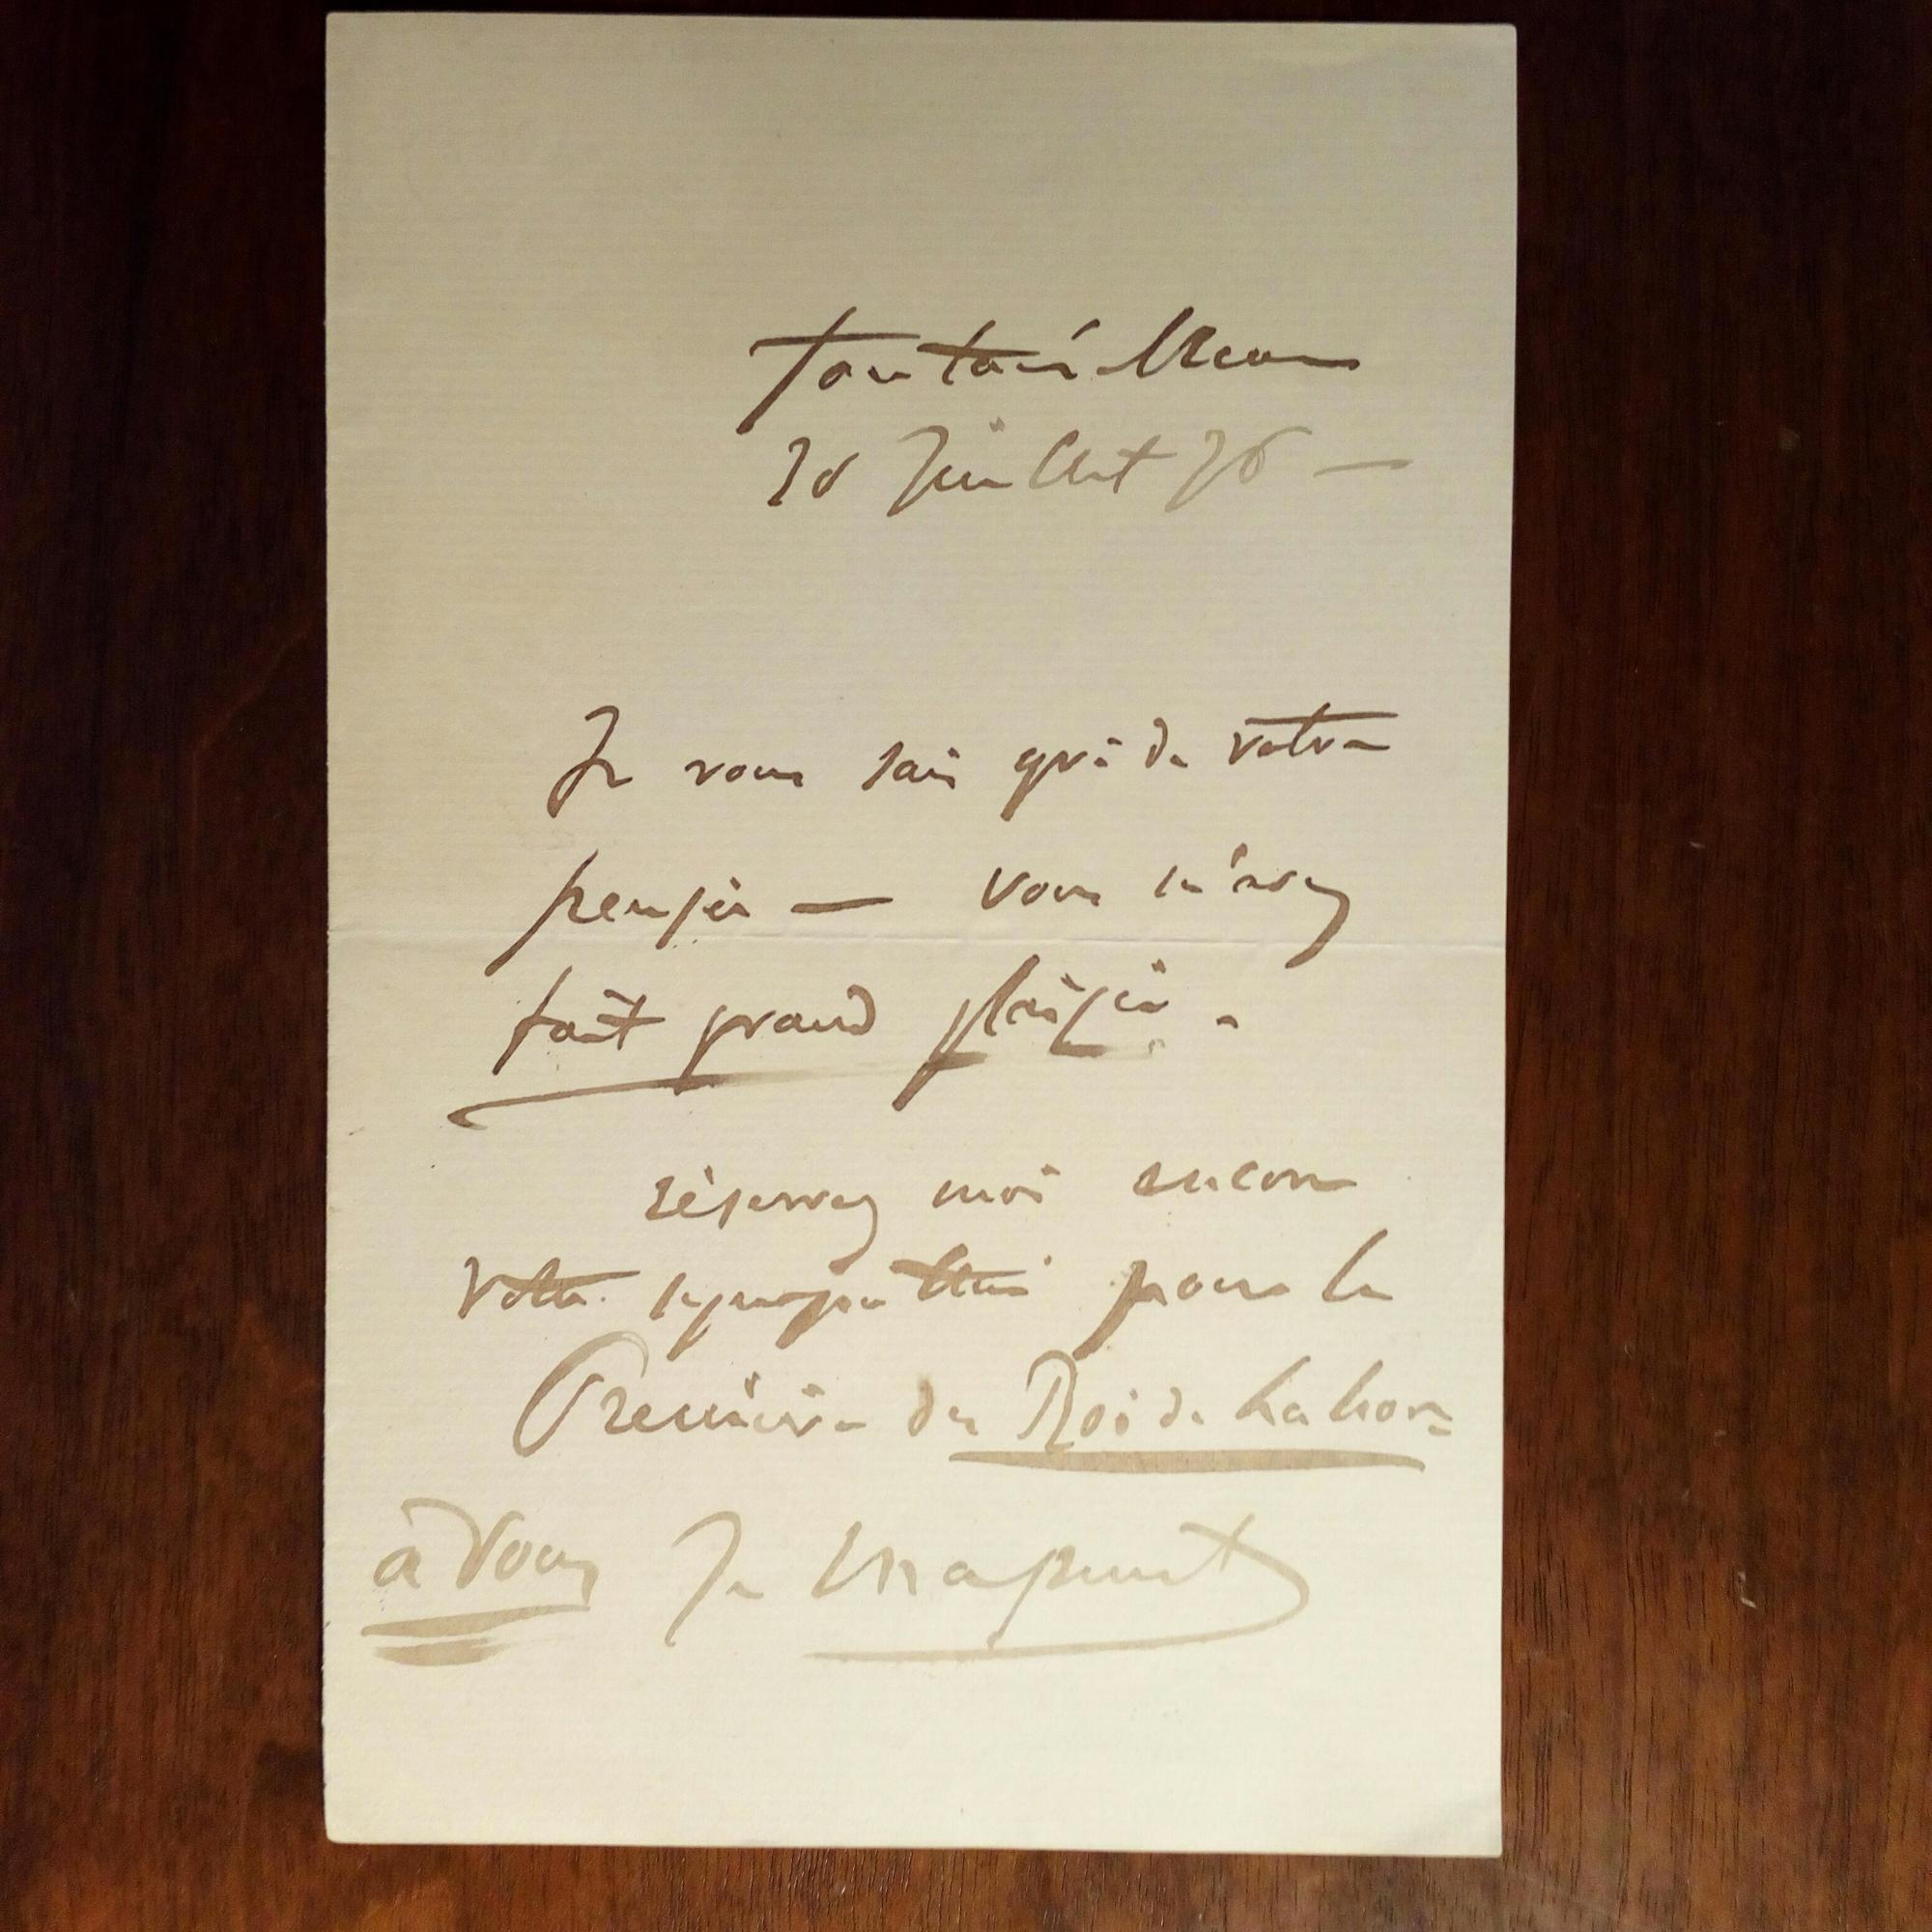 Fontainebleau
28 Juillet 76 —
Je vous sais gré de votre
pensée — vous m'avez
fait grand plaisir.
réservez moi encore
votre sympathie pour la
Première du Roi de Lahore
à vous J. Massenet